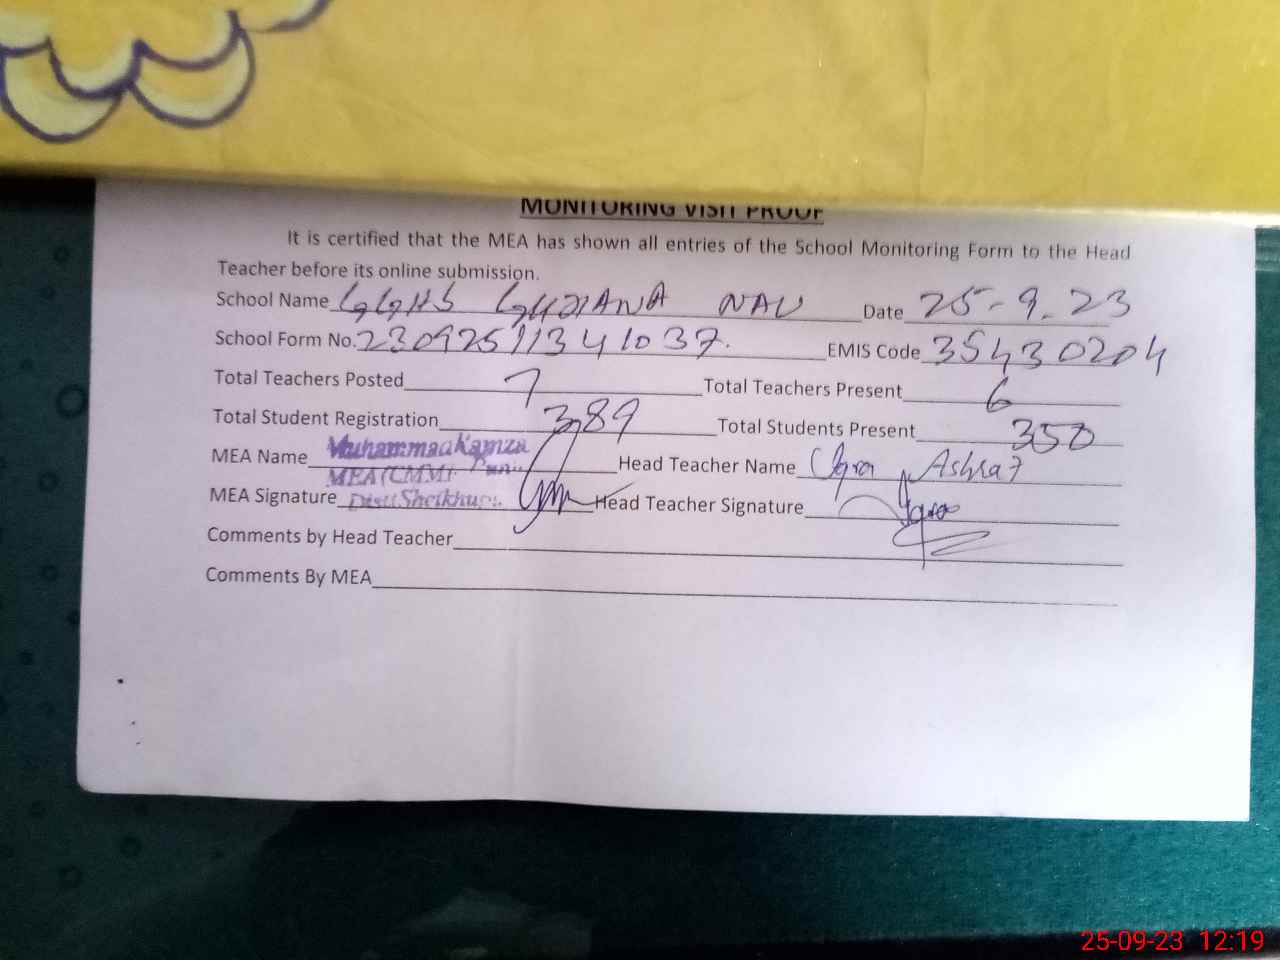 MONITORING VISIT PROOF
It is certified that the MEA has shown all entries of the School Monitoring Form to the Head
Teacher before its online submission.
School Name GGHS GHZIANA NAU Date 25-9-23
School Form No. 23092511341037. EMIS Code 35430204
Total Teachers Posted 7 Total Teachers Present 6
Total Student Registration 389 Total Students Present 350
MEA Name Muhammad Hamza Head Teacher Name Iqra Ashraf
MEA (CMM)
MEA Signature Distt Sheikhupura Head Teacher Signature Iqra
Comments by Head Teacher
Comments By MEA
25-09-23 12:19